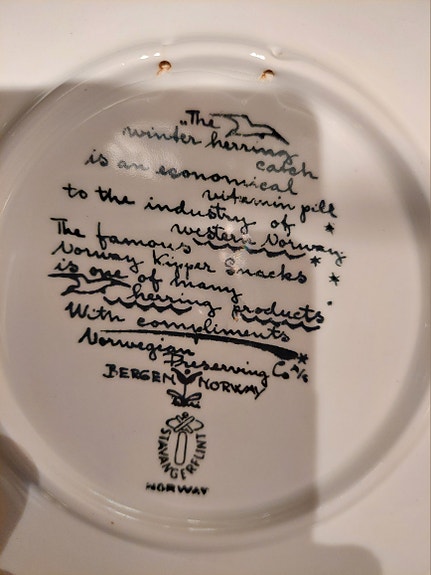 „The
winter herring
catch
is an economical
vitamin pill
to the industry of
western Norway
The famous
Norway Kipper Snacks
is one of many
herring products
With compliments
Norwegian
Preserving Co A/S
BERGEN NORWAY
STAVANGERFLINT
NORWAY